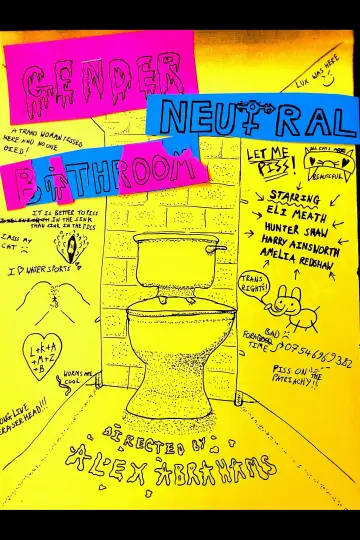 GENDER
NEUTRAL
BATHROOM
LUX WAS HERE
A TRANS WOMAN PISSED
HERE AND NO ONE
DIED!
LET ME
PISS!
BEAUTIFUL
IT IS BETTER TO PISS
IN THE SINK
THAN SINK IN THE PISS
I MISS MY
CAT
I ♡ WATER SPORTS
STARRING
ELI MEATH
HUNTER SHAW
HARRY AINSWORTH
AMELIA REDSHAW
TRANS
RIGHTS!
L+K+A
+M+Z
+B
WORMS ARE
COOL
FOR A
TIME
PISS ON THE
PATRIACHY!!
LONG LIVE
ERASERHEAD!!!
DIRECTED BY
ALEX ABRAHAMS